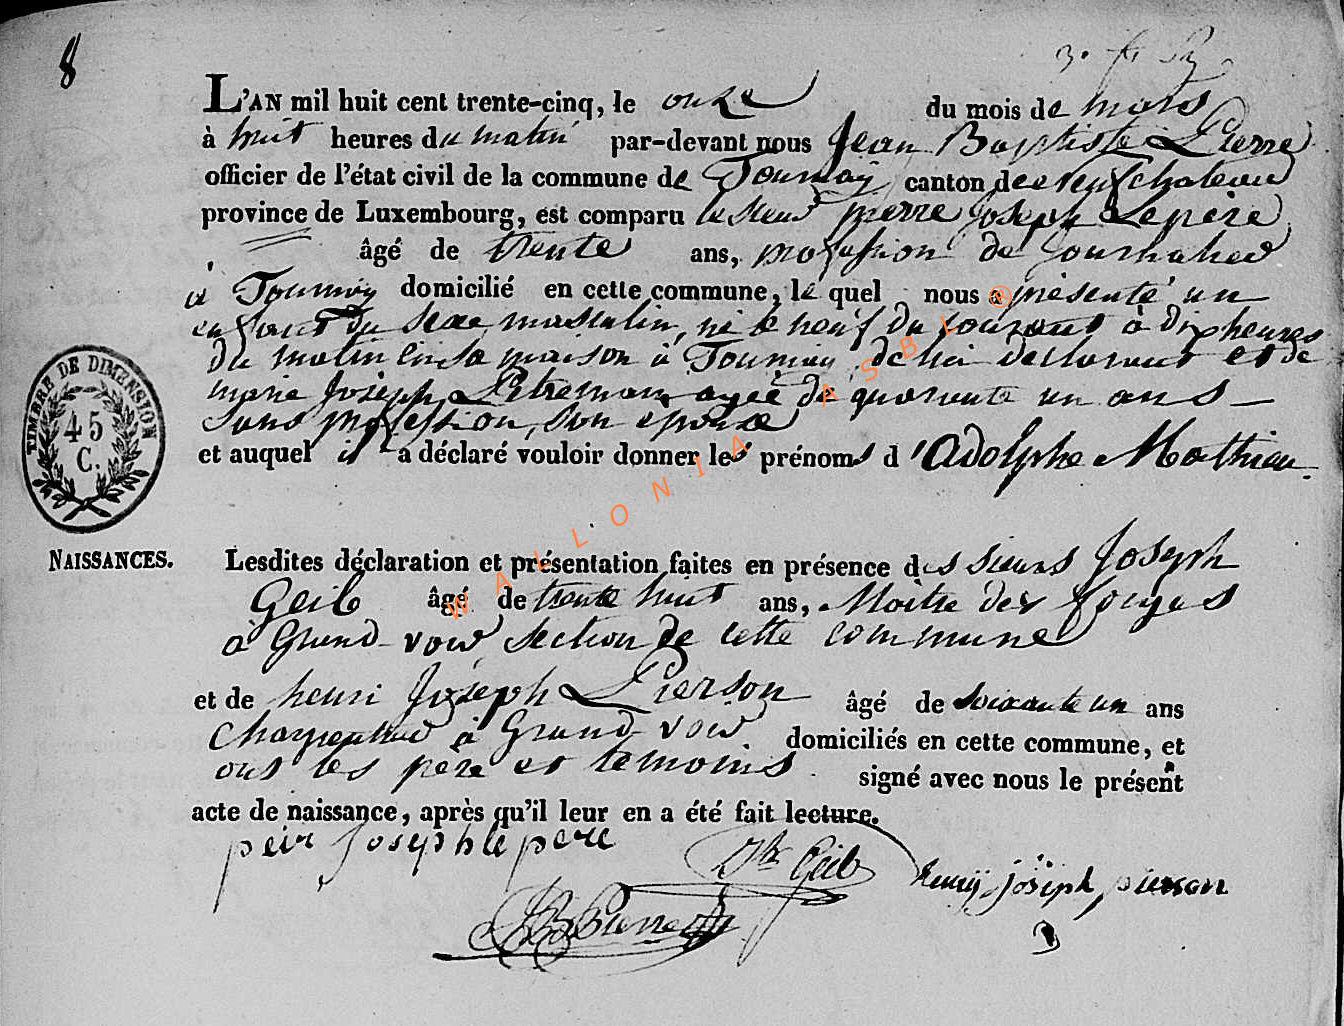 8
L'AN mil huit cent trente-cinq, le onze du mois de mars
à huit heures du matin par-devant nous Jean Baptiste Pierre
officier de l'état civil de la commune de Tournay canton de neufchateau
province de Luxembourg, est comparu le sieur pierre Joseph Lepère
âgé de trente ans, profession de Journalier
à Tournay domicilié en cette commune, le quel nous a présenté un
enfant du sexe masculin, né le neuf du courant à dix heures
du matin en sa maison à Tournay, de lui déclarant et de
marie Joseph agée de quarante un ans
sans profession, son epouse
et auquel il a déclaré vouloir donner les prénoms d'Adolphe Mathieu.
TIMBRE DE DIMENSION
45
C.
NAISSANCES.
Lesdites déclaration et présentation faites en présence des sieurs Joseph
Geib âgé de trente huit ans, Maitre des forges
à Grand-voir section de cette commune
et de henri Joseph Pierson âgé de soixante un ans
charpentier à Grand-voir domiciliés en cette commune, et
ont les père et temoins signé avec nous le présent
acte de naissance, après qu'il leur en a été fait lecture.
peir Joseph le pere
Jh Geib
henrÿ joseph pierson
JB Pierre
WALLONIA ASBL ©